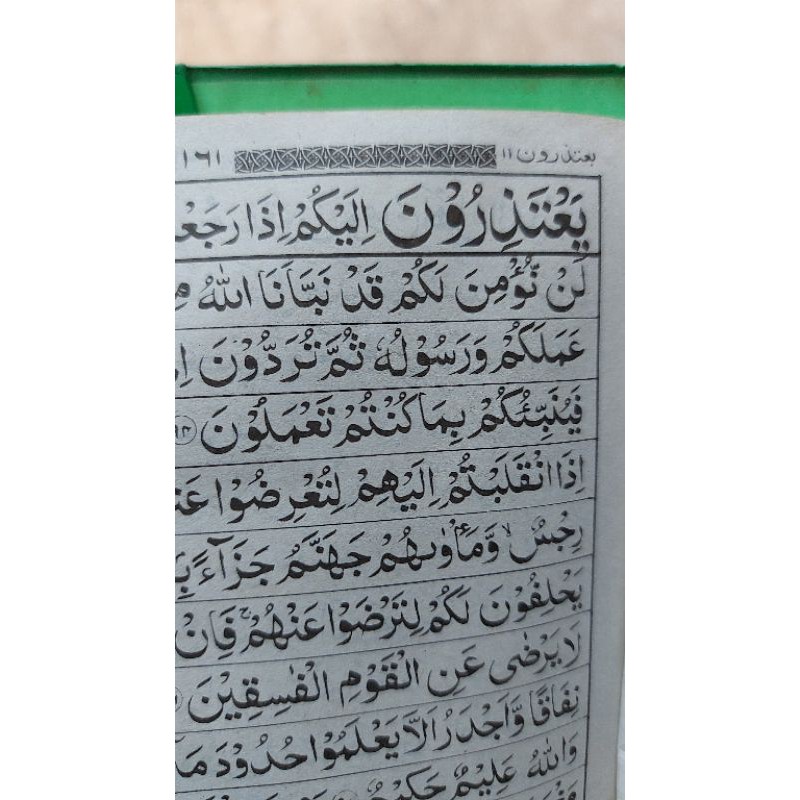 يعتذرون ١١ ١٦١
يَعْتَذِرُوْنَ اِلَيْكُمْ اِذَا رَجَعْ
لَنْ نُّؤْمِنَ لَكُمْ قَدْ نَبَّاَنَا اللّٰهُ مِ
عَمَلَكُمْ وَرَسُوْلُهٗ ثُمَّ تُرَدُّوْنَ اِ
فَيُنَبِّئُكُمْ بِمَا كُنْتُمْ تَعْمَلُوْنَ
اِذَا انْقَلَبْتُمْ اِلَيْهِمْ لِتُعْرِضُوْا عَنْ
رِجْسٌ ۙ وَّمَاْوٰىهُمْ جَهَنَّمُ جَزَآءًۢ بِ
يَحْلِفُوْنَ لَكُمْ لِتَرْضَوْا عَنْهُمْ ۚ فَاِنْ
لَا يَرْضٰى عَنِ الْقَوْمِ الْفٰسِقِيْنَ
نِفَاقًا وَّاَجْدَرُ اَلَّا يَعْلَمُوْا حُدُوْدَ مَآ
وَاللّٰهُ عَلِيْمٌ حَكِيْمٌ